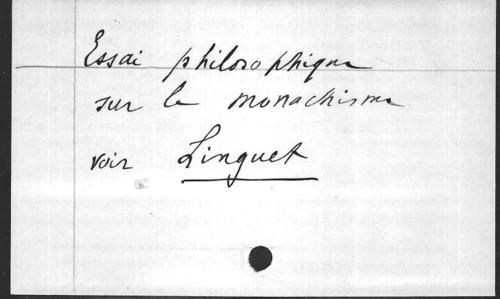 Essai philosophique
sur le monachisme
voir Linguet